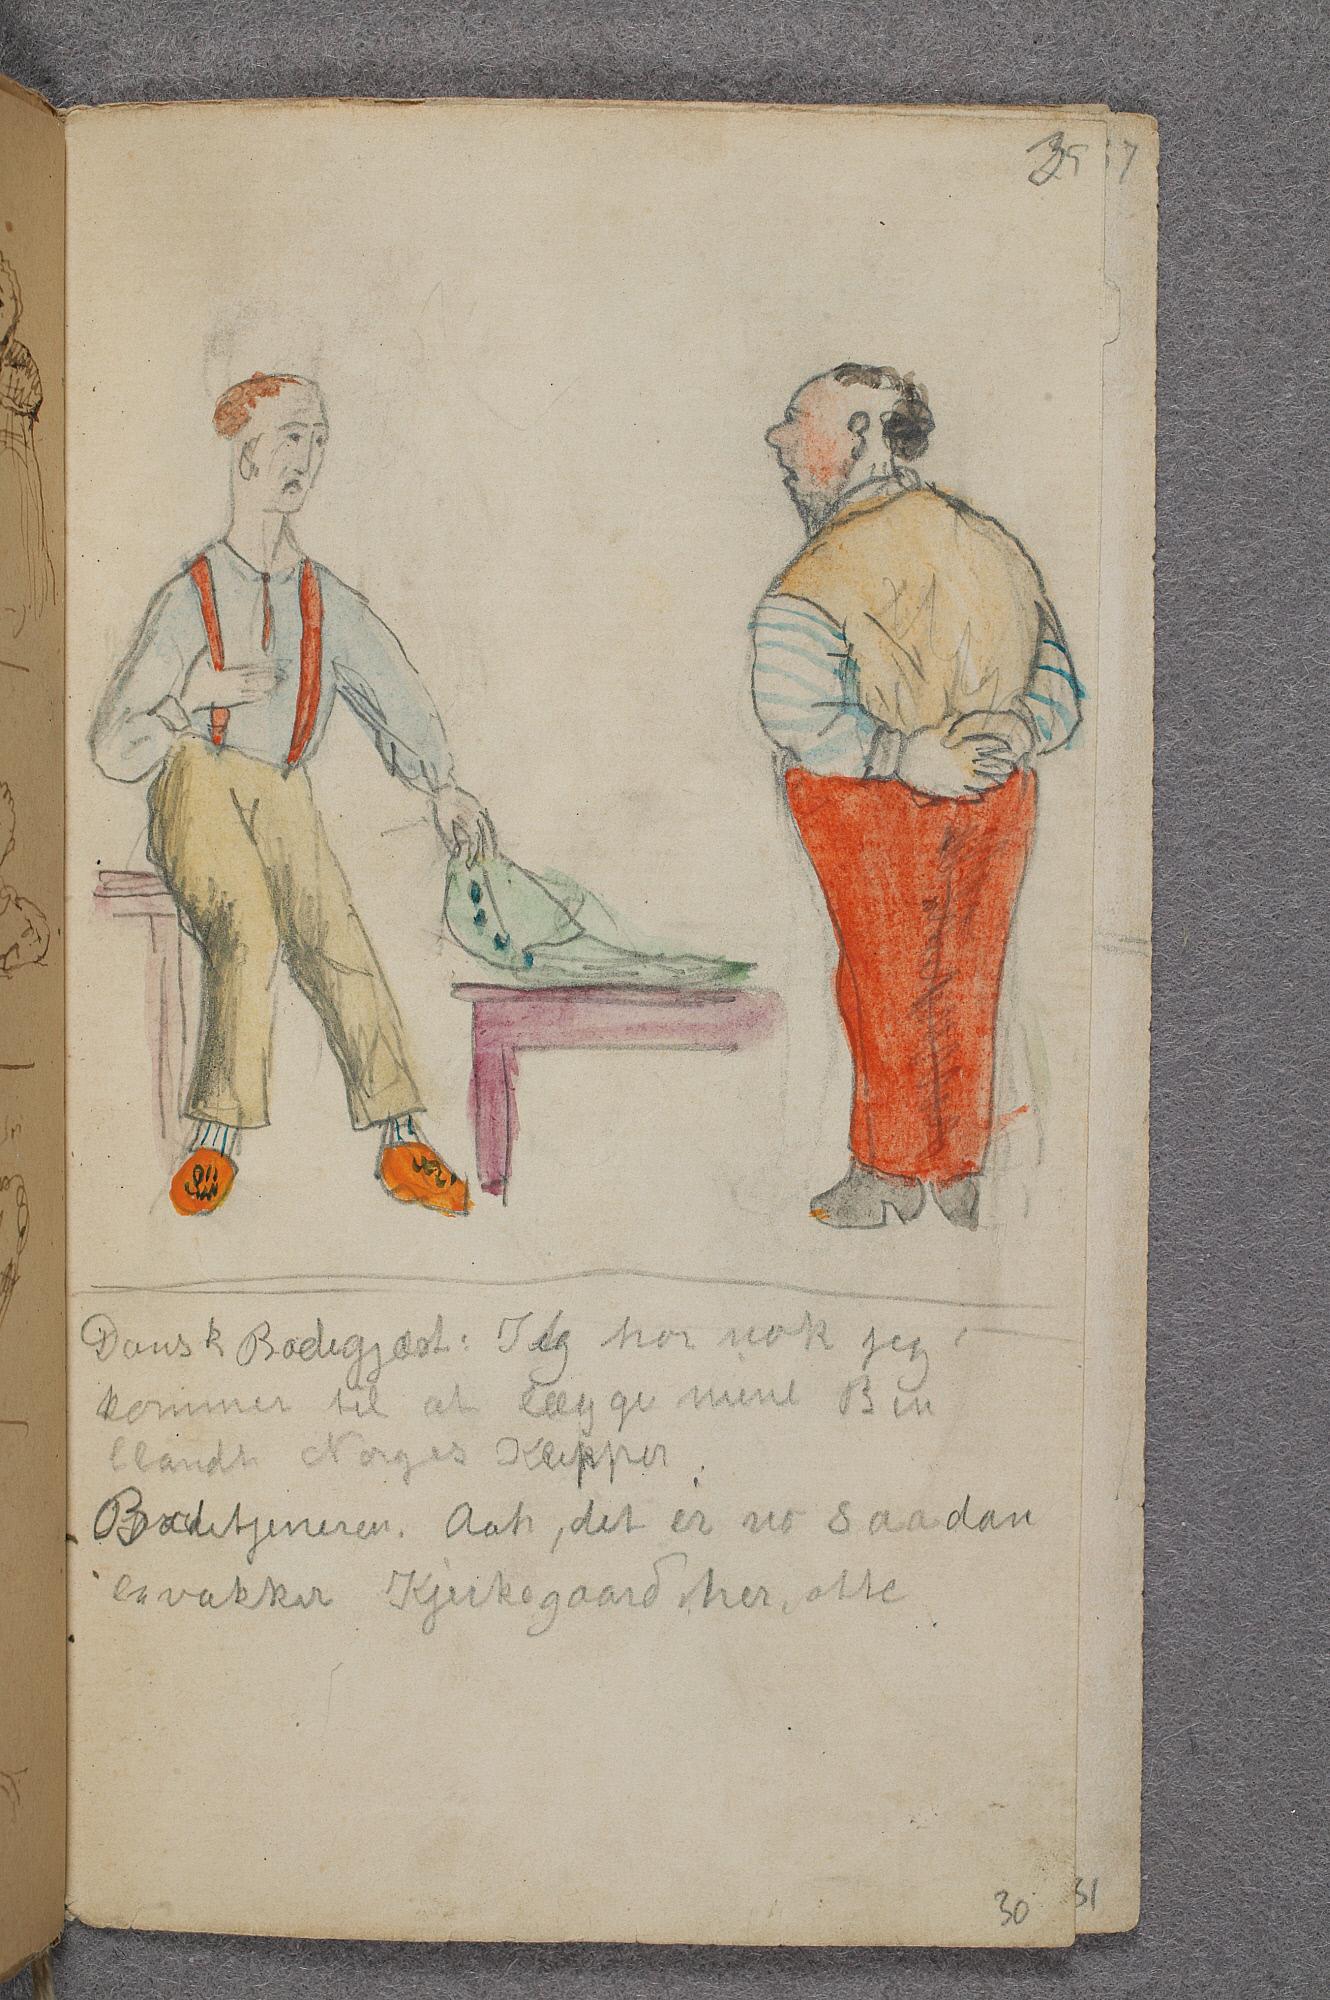 39 37
Dansk Badegjæst: Jeg tror nok jeg
kommer til at lægge mine Ben
blandt Norges Klipper.
Badetjeneren. Aah, det er no saadan
en vakker Kjerkegaard her, atte
30 31